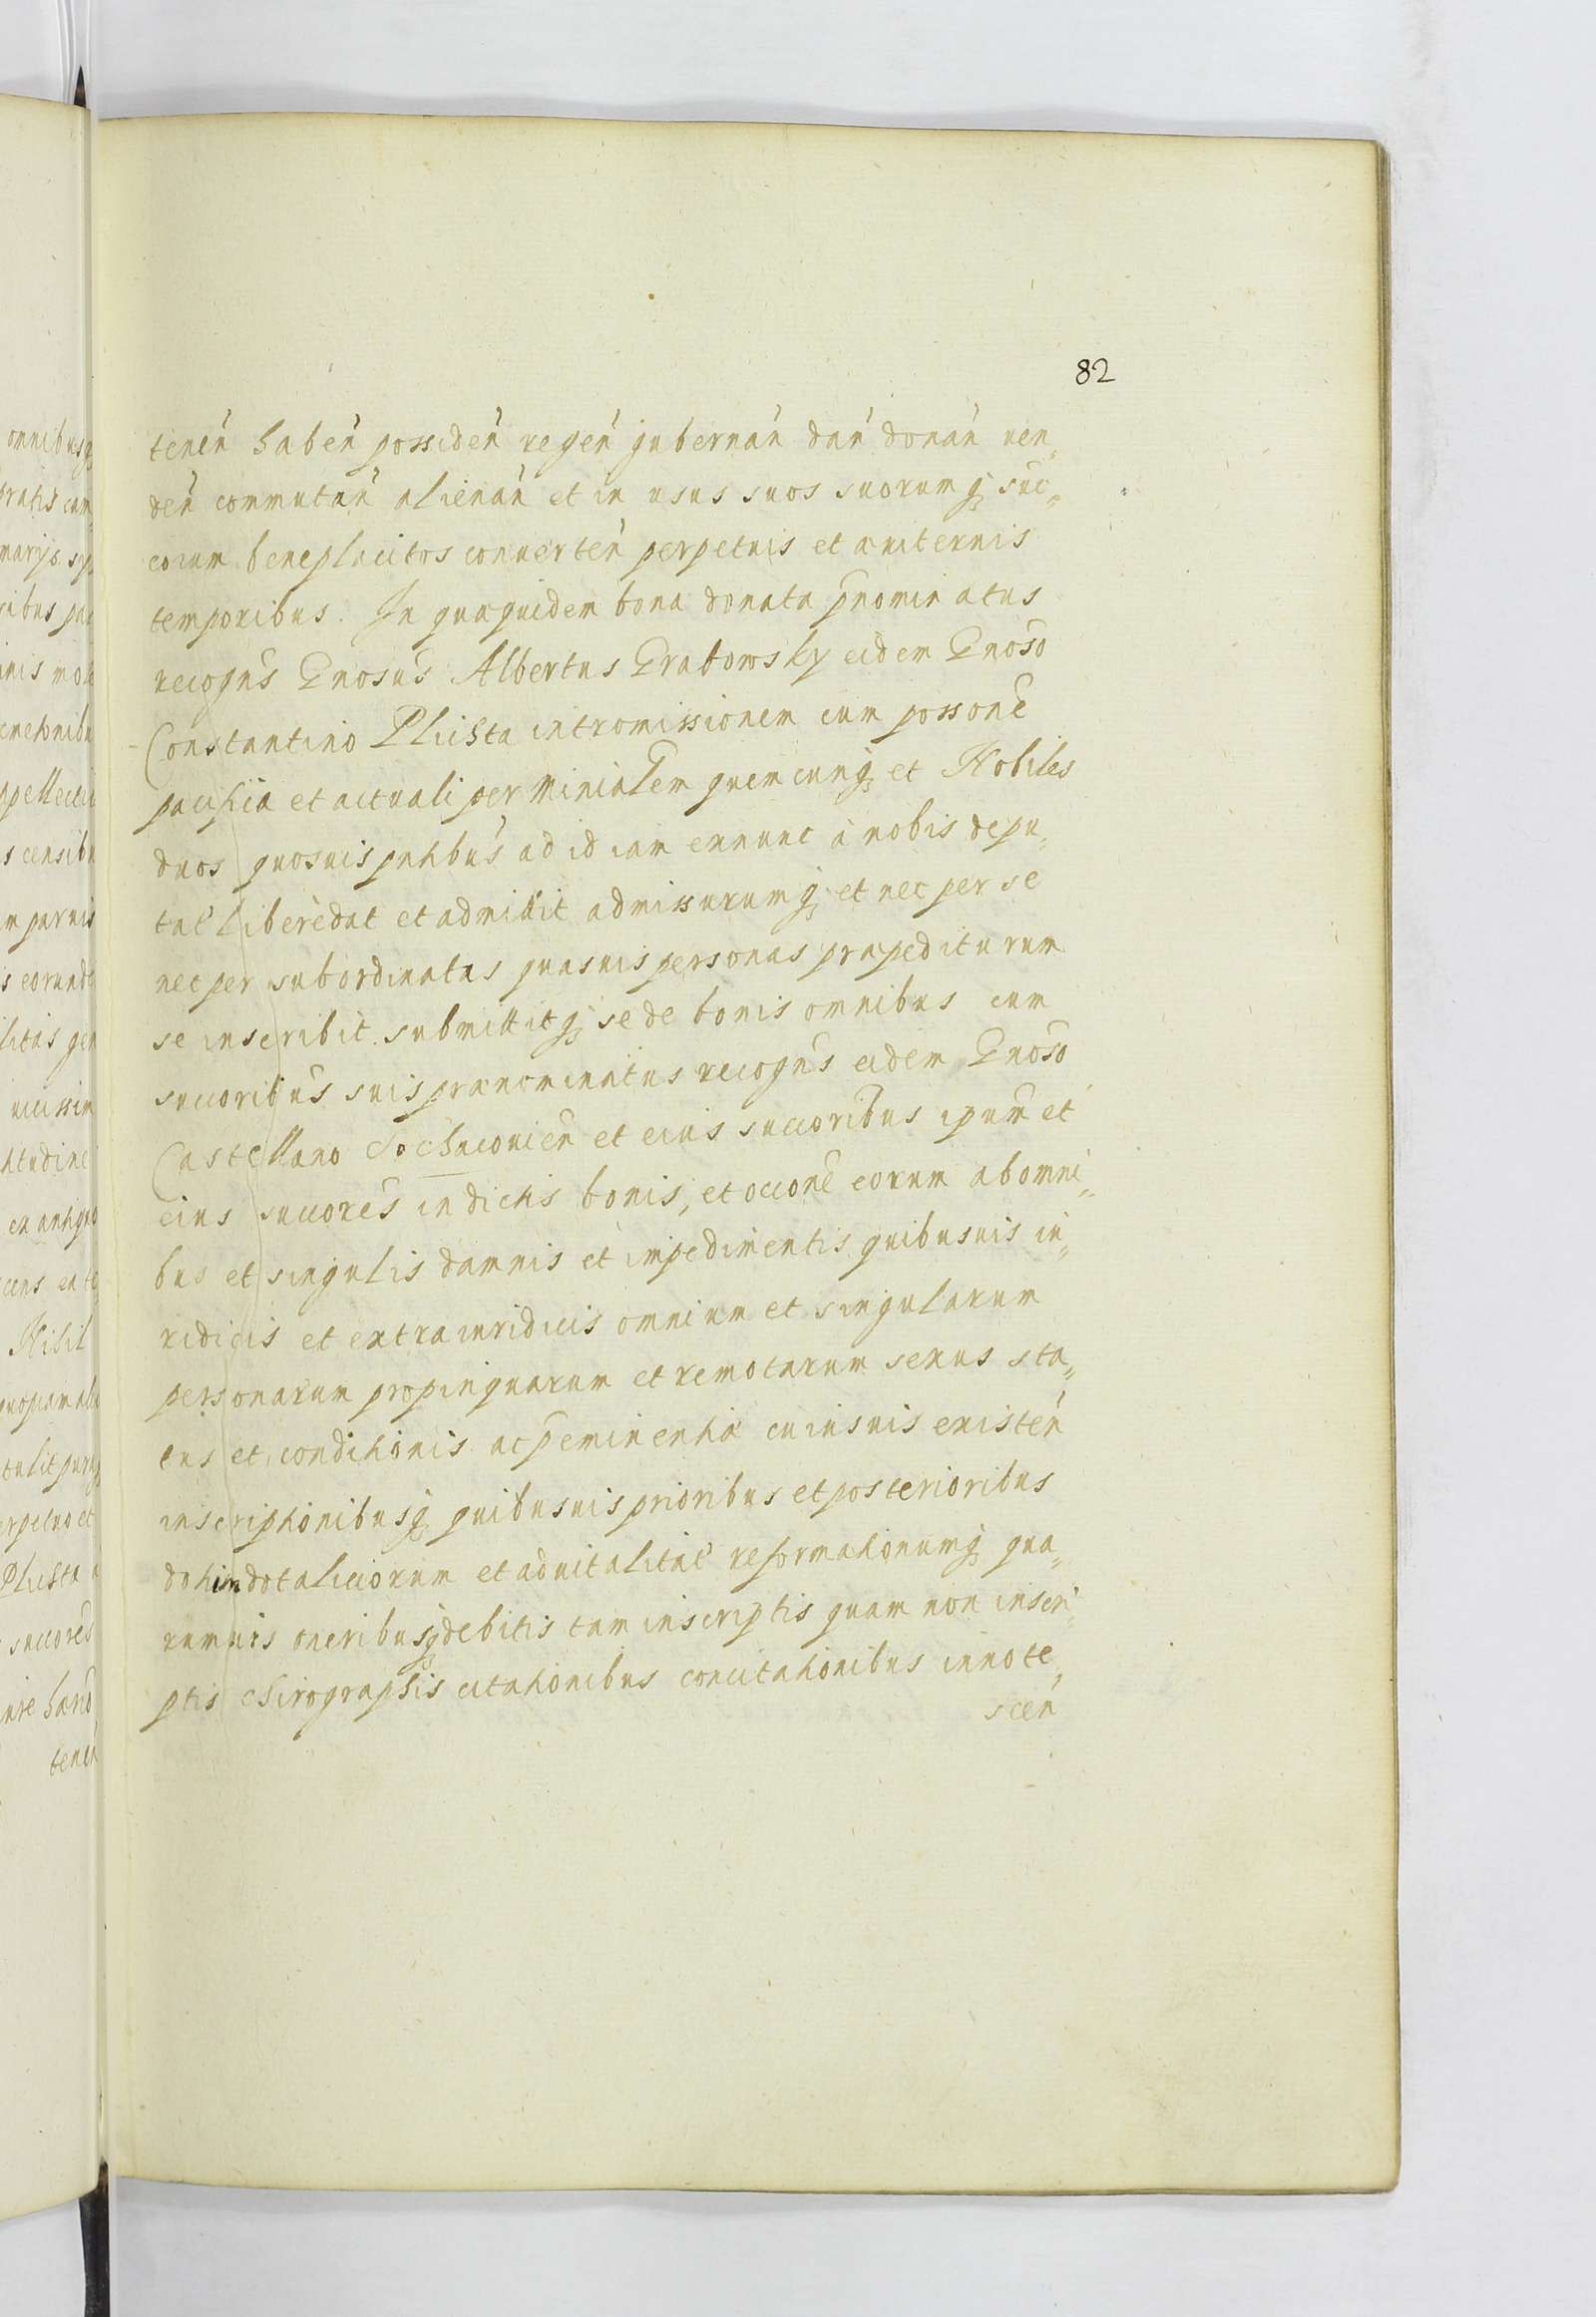 82
tenen̄ haben̄ possiden̄ regen̄ gubernan̄ dan̄ donan̄ uen„
den̄ commutan̄ alienan̄ et in usus suos suorumq; suc„
corum beneplacitos conuerten̄ perpetuis et æuiternis
temporibus. In quæquidem bona donata p̄nominatus
recogn̄s G̃nosus Albertus Grabowsky eidem G̃noso
Constantino Plichta intromissionem cum possone
pacifica et actuali per Ministlem quemcunq; et Nobiles
duos quosuis pn̄tibus ad id iam exnunc à nobis depu„
tat̄ liberè dat et admittit admissurumq; et nec per se
nec per subordinatas quasuis personas præpediturum
se inscribit. submittitq; se de bonis omnibus cum
succoribus suis prænominatus recogn̄s eidem G̃noso
Castellano Sochaconien̄ et eius succoribus ipsum et
eius succores in dictis bonis, et occone eorum ab omni„
bus et singulis damnis et impedimentis quibusuis iu„
ridicis et extraiuridicis omnium et singularum
personarum propinquarum et remotarum sexus sta„
tus et conditionis ac p̄eminentiæ cuiusuis existen̄
inscriptionibusq; quibusuis prioribus et posterioribus
dotium dotaliciorum et aduitalitat̄ reformationumq; qua„
rumuis oneribusq; debitis tam inscriptis quam non inscri„
ptis chirographis citationibus concitationibus innote„
scen̄
omnibusq;
pratis cam„
ppellecti
s censibu
m paruis
s eorunde
ucissim
ex antiquo
Nihil
tulit
erpetuo et
Plichta
succores
iure
tenen̄